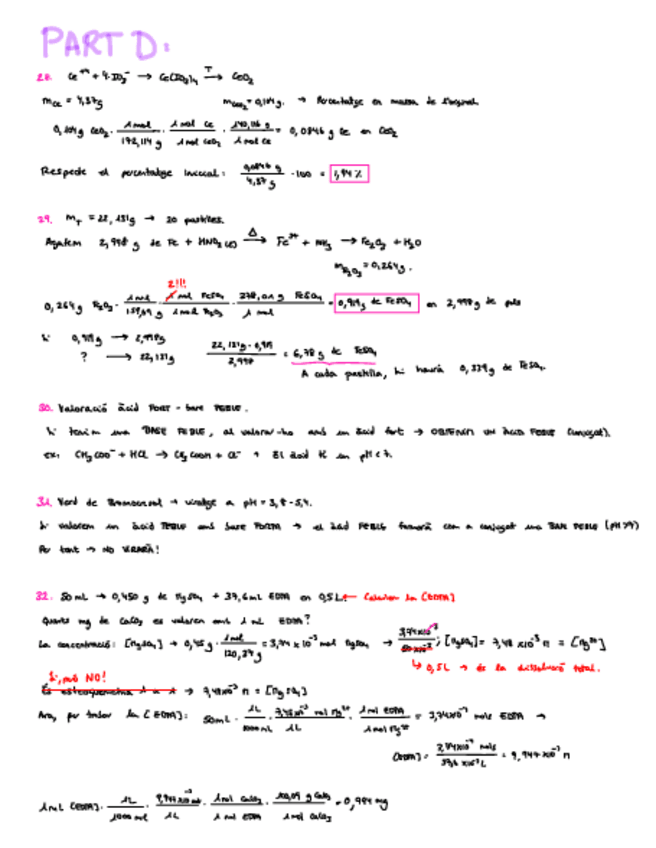 PART D:
28. Ce⁴⁺ + 4·IO₃⁻ → Ce(IO₃)₄ —T→ CeO₂
mCe = 4,37g mCeO₂ = 0,104g. → Percentatge en massa de l'original.
0,104g CeO₂ · 1 mol / 172,114 g · 1 mol Ce / 1 mol CeO₂ · 140,116 g / 1 mol Ce = 0,0846 g Ce en CeO₂
Respecte el percentatge inicial: 0,0846 g / 4,37 g · 100 = 1,94 %
29. mT = 22,131g → 20 pastilles.
Agafem 2,998 g de Fe + HNO₃ (c) —Δ→ Fe³⁺ + NH₃ → Fe₂O₃ + H₂O
mFe₂O₃ = 0,264g.
2!!!
0,264g Fe₂O₃ · 1 mol / 159,69 g · mol FeSO₄ / 1 mol Fe₂O₃ · 278,01 g FeSO₄ / 1 mol = 0,919g de FeSO₄ en 2,998g de pols
Si 0,919g → 2,998g
? → 22,131g 22,131g · 0,919 / 2,998 = 6,78 g de FeSO₄
A cada pastilla, hi haurà 0,339g de FeSO₄.
30. Valoració àcid FORT - base FEBLE.
Si tenim una BASE FEBLE, al valorar-ho amb un àcid fort → OBTENIM UN ÀCID FEBLE (conjugat).
ex: CH₃COO⁻ + HCl → CH₃COOH + Cl⁻ El àcid té un pH < 7.
31. Verd de Bromocresol → viratge a pH = 3,8 - 5,4.
Si valorem un àcid FEBLE amb base FORTA → el àcid FEBLE formarà com a conjugat una BASE FEBLE (pH>7)
Per tant → NO VIRARÀ!
32. 50 mL → 0,450 g de MgSO₄ + 37,6 mL EDTA en 0,5 L. ← Calculem la [EDTA]
Quants mg de CaCO₃ es valoren amb 1 mL EDTA?
La concentració: [MgSO₄] → 0,45g · 1 mol / 120,37g = 3,74×10⁻³ mol MgSO₄ → 3,74×10⁻³ / 50×10⁻³ ; [MgSO₄] = 7,48×10⁻³ M = [Mg²⁺]
↳ 0,5L → és la dissolució total.
NO!
És estequiometria 1 a 1 → 7,48×10⁻³ M = [MgSO₄]
Ara, per trobar la [EDTA]: 50mL · 1L / 1000mL · 7,48×10⁻³ mol Mg²⁺ / 1L · 1 mol EDTA / 1 mol Mg²⁺ = 3,74×10⁻⁴ mols EDTA →
[EDTA] = 3,74×10⁻⁴ mols / 37,6×10⁻³ L = 9,947×10⁻³ M
1 mL [EDTA] · 1L / 1000 mL · 9,947×10⁻³ mol / 1L · 1 mol CaCO₃ / 1 mol EDTA · 100,09 g CaCO₃ / 1 mol CaCO₃ = 0,994 mg